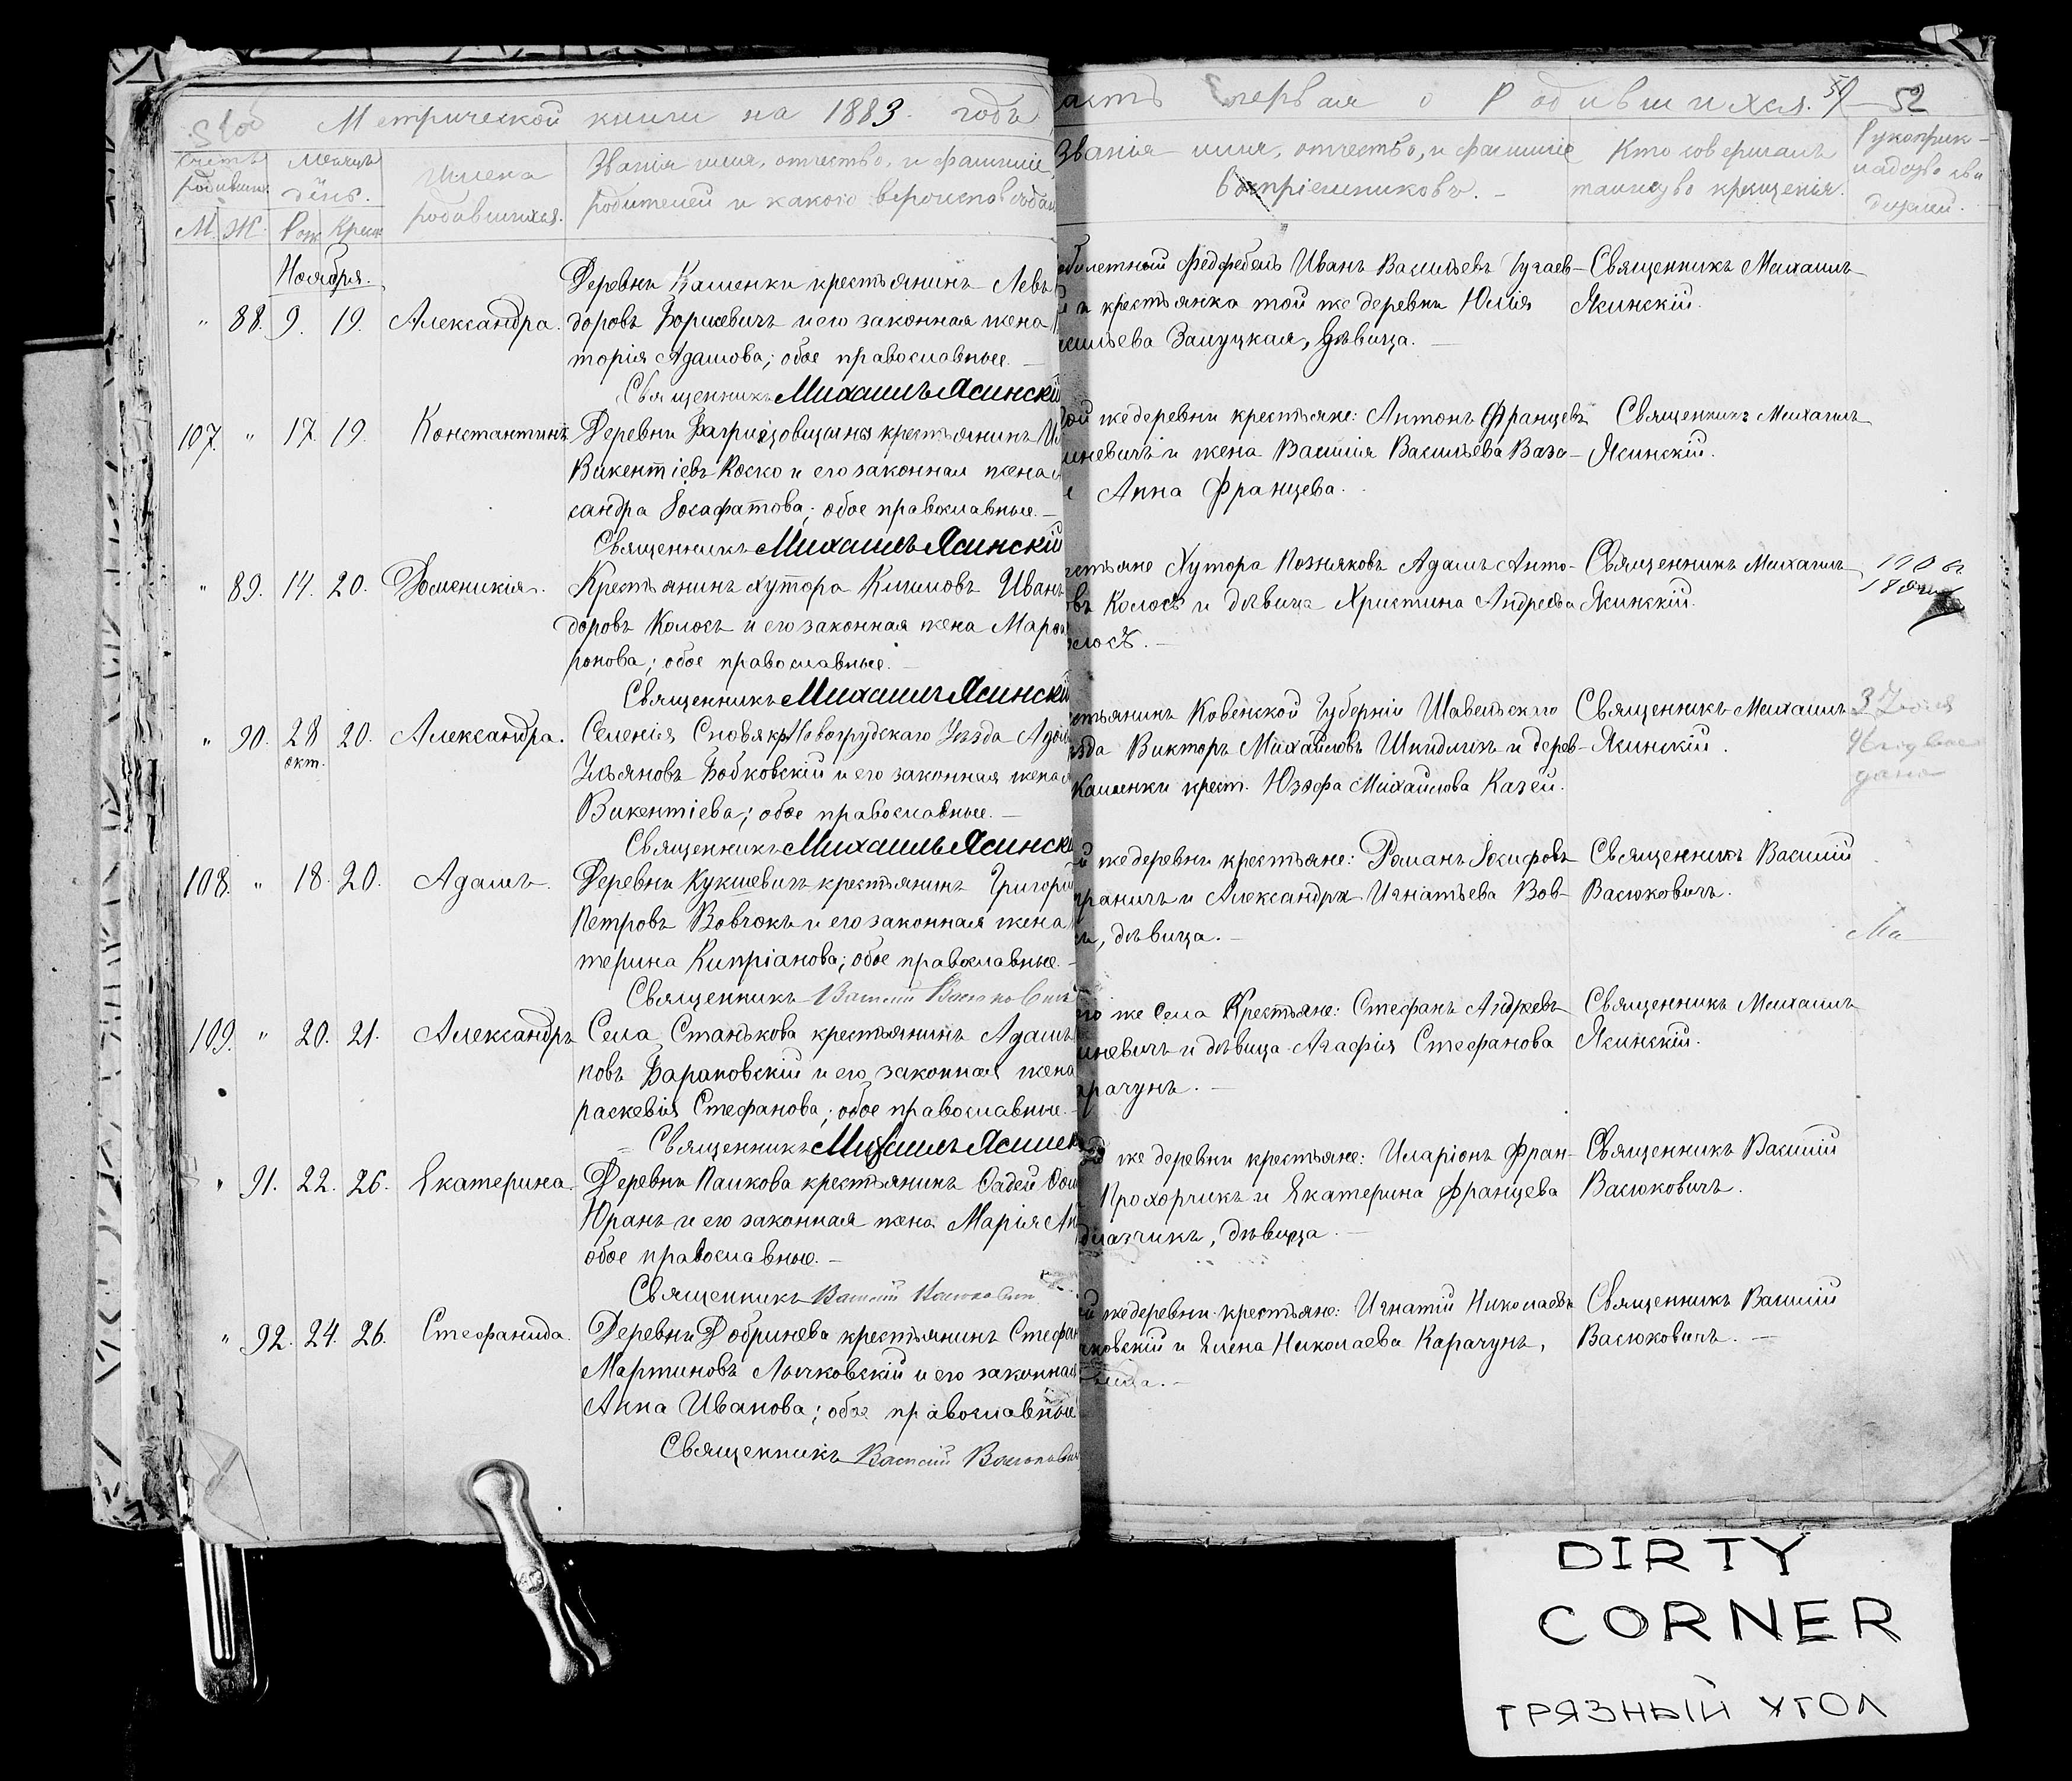 Метрической книги на 1883 годъ
асть первая о Родившихся. 52
Счетъ родивших.
М. Ж.
Мѣсяцъ день.
Рож. Крещ.
Имена родившихся.
Званія имя, отчество, и фамилія
родителей и какого вѣроисповѣдан
Званія имя, отчество, и фамилія
воспріемниковъ. —
Кто совершалъ
таинство крещенія.
Рукоприк-
ладство сви
дѣтелей.
Ноября.
" 88. 9. 19. Александра.
Деревни Каменки крестьянинъ Левъ
доровъ Борисевичъ и его законная жена
торія Адамова; обое православные. —
Священникъ Михаилъ Ясинскій
билетный Федфебель Иванъ Васильевъ Гугаев-
и крестьянка той же деревни Юлія
сильева Залуцкая, дѣвица. —
Священникъ Михаилъ
Ясинскій.
107. " 17. 19. Константинъ
Деревни крестьянинъ
Викентіевъ Коско и его законная жена
сандра Іосафатова; обое православные. —
Священникъ Михаилъ Ясинскій
ой же деревни крестьяне: Антонъ Францевъ
иневичъ и жена Василія Васильева Ваза-
Анна Францева.
Священникъ Михаилъ
Ясинскій.
" 89. 14. 20. Доминикія.
Крестьянинъ хутора Климовъ Иванъ
доровъ Колосъ и его законная жена Мар
ронова; обое православные. —
Священникъ Михаилъ Ясинскій
стьяне Хутора Позняковъ Адамъ Анто-
овъ Колосъ и дѣвица Христина Андреева
олосъ. —
Священникъ Михаилъ
Ясинскій.
" 90. 28 окт. 20. Александра.
Селенія Сновя кр. Новогрудскаго Уѣзда Адам
Ульяновъ Бобковскій и его законная жена
Викентіева; обое православные. —
Священникъ Михаилъ Ясинскі
стьянинъ Ковенской Губерніи Шавельскаго
ѣзда Викторъ Михайловъ и дерев-
Каменки крест. Юзефа Михайлова Казей.
Священникъ Михаилъ
Ясинскій.
108. " 18. 20. Адамъ.
Деревни Кукшевичъ крестьянинъ Григорій
Петровъ Вовчокъ и его законная жена
терина Кипріанова; обое православные. —
Священникъ Василій Васюковичъ
й же деревни крестьяне: Романъ Іосифовъ
раничъ и Александра Игнатьева Вов-
къ, дѣвица. —
Священникъ Василій
Васюковичъ.
109. " 20. 21. Александръ
Села Станькова крестьянинъ Адамъ
повъ Барановскій и его законная жена
раскевія Стефанова; обое православные. —
Священникъ Михаилъ Ясинск
го же села Крестьяне: Стефанъ Андреевъ
иневичъ и дѣвица Агафія Стефанова
арачунъ. —
Священникъ Михаилъ
Ясинскій.
" 91. 22. 26. Екатерина
Деревни Паикова крестьянинъ Фадей Фом
Юранъ и его законная жена Марія Ан
обое православные. —
Священникъ Василій Васюкович
же деревни крестьяне: Иларіонъ Фран-
Прохорчикъ и Екатерина Францева
дѣвица. —
Священникъ Василій
Васюковичъ.
" 92. 24. 26. Стефанида.
Деревни Добринева крестьянинъ Стефан
Мартиновъ Лычковскій и его законная
Анна Иванова; обое православные
Священникъ Василій Васюкович
й же деревни крестьяне: Игнатій Николаевъ
чковскій и Елена Николаева Карачунъ,
вица. —
Священникъ Василій
Васюковичъ. —
DIRTY
CORNER
ГРЯЗНЫЙ УГОЛ